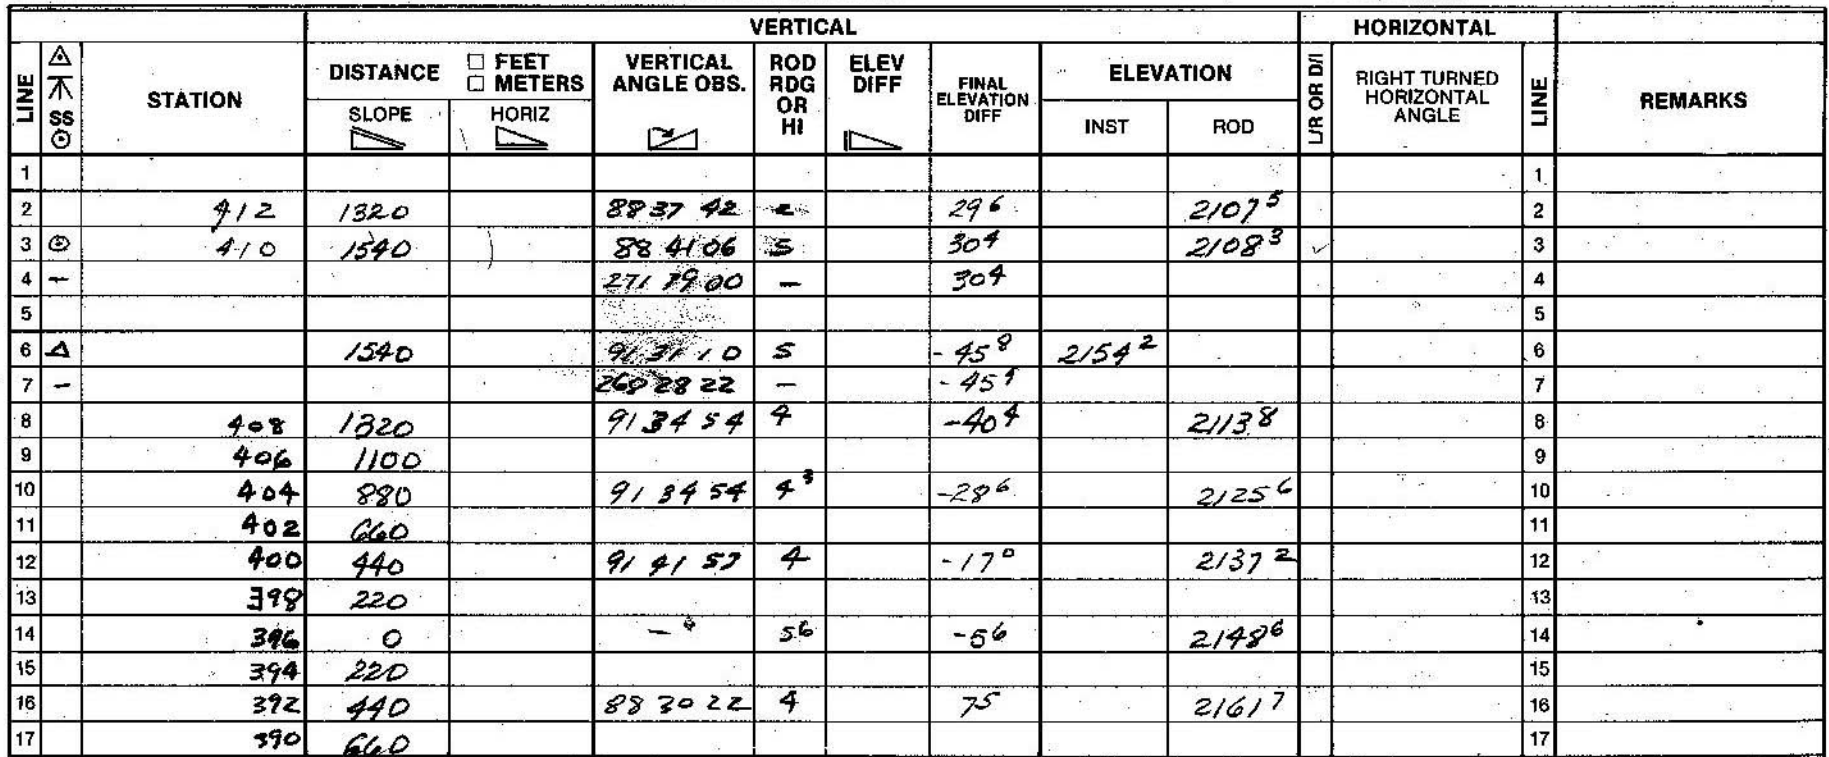 VERTICAL HORIZONTAL
LINE SS STATION DISTANCE □ FEET □ METERS VERTICAL ANGLE OBS. ROD RDG OR HI ELEV DIFF FINAL ELEVATION DIFF ELEVATION L/R OR D/I RIGHT TURNED HORIZONTAL ANGLE LINE REMARKS
SLOPE HORIZ INST ROD
1 1
2 412 1320 88 37 42 29 6 2107 5 2
3 410 1540 88 41 06 5 30 4 2108 3 ✓ 3
4 - 271 39 00 - 30 4 4
5 5
6 Δ 1540 91 31 10 5 -45 8 2154 2 6
7 - 268 28 22 - -45 9 7
8 408 1320 91 34 54 4 -40 4 2113 8 8
9 406 1100 9
10 404 880 91 34 54 4 3 -28 6 2125 6 10
11 402 660 11
12 400 440 91 41 57 4 -17 0 2137 2 12
13 398 220 13
14 396 0 - 5 6 -5 6 2148 6 14
15 394 220 15
16 392 440 88 30 22 4 7 5 2161 7 16
17 390 660 17